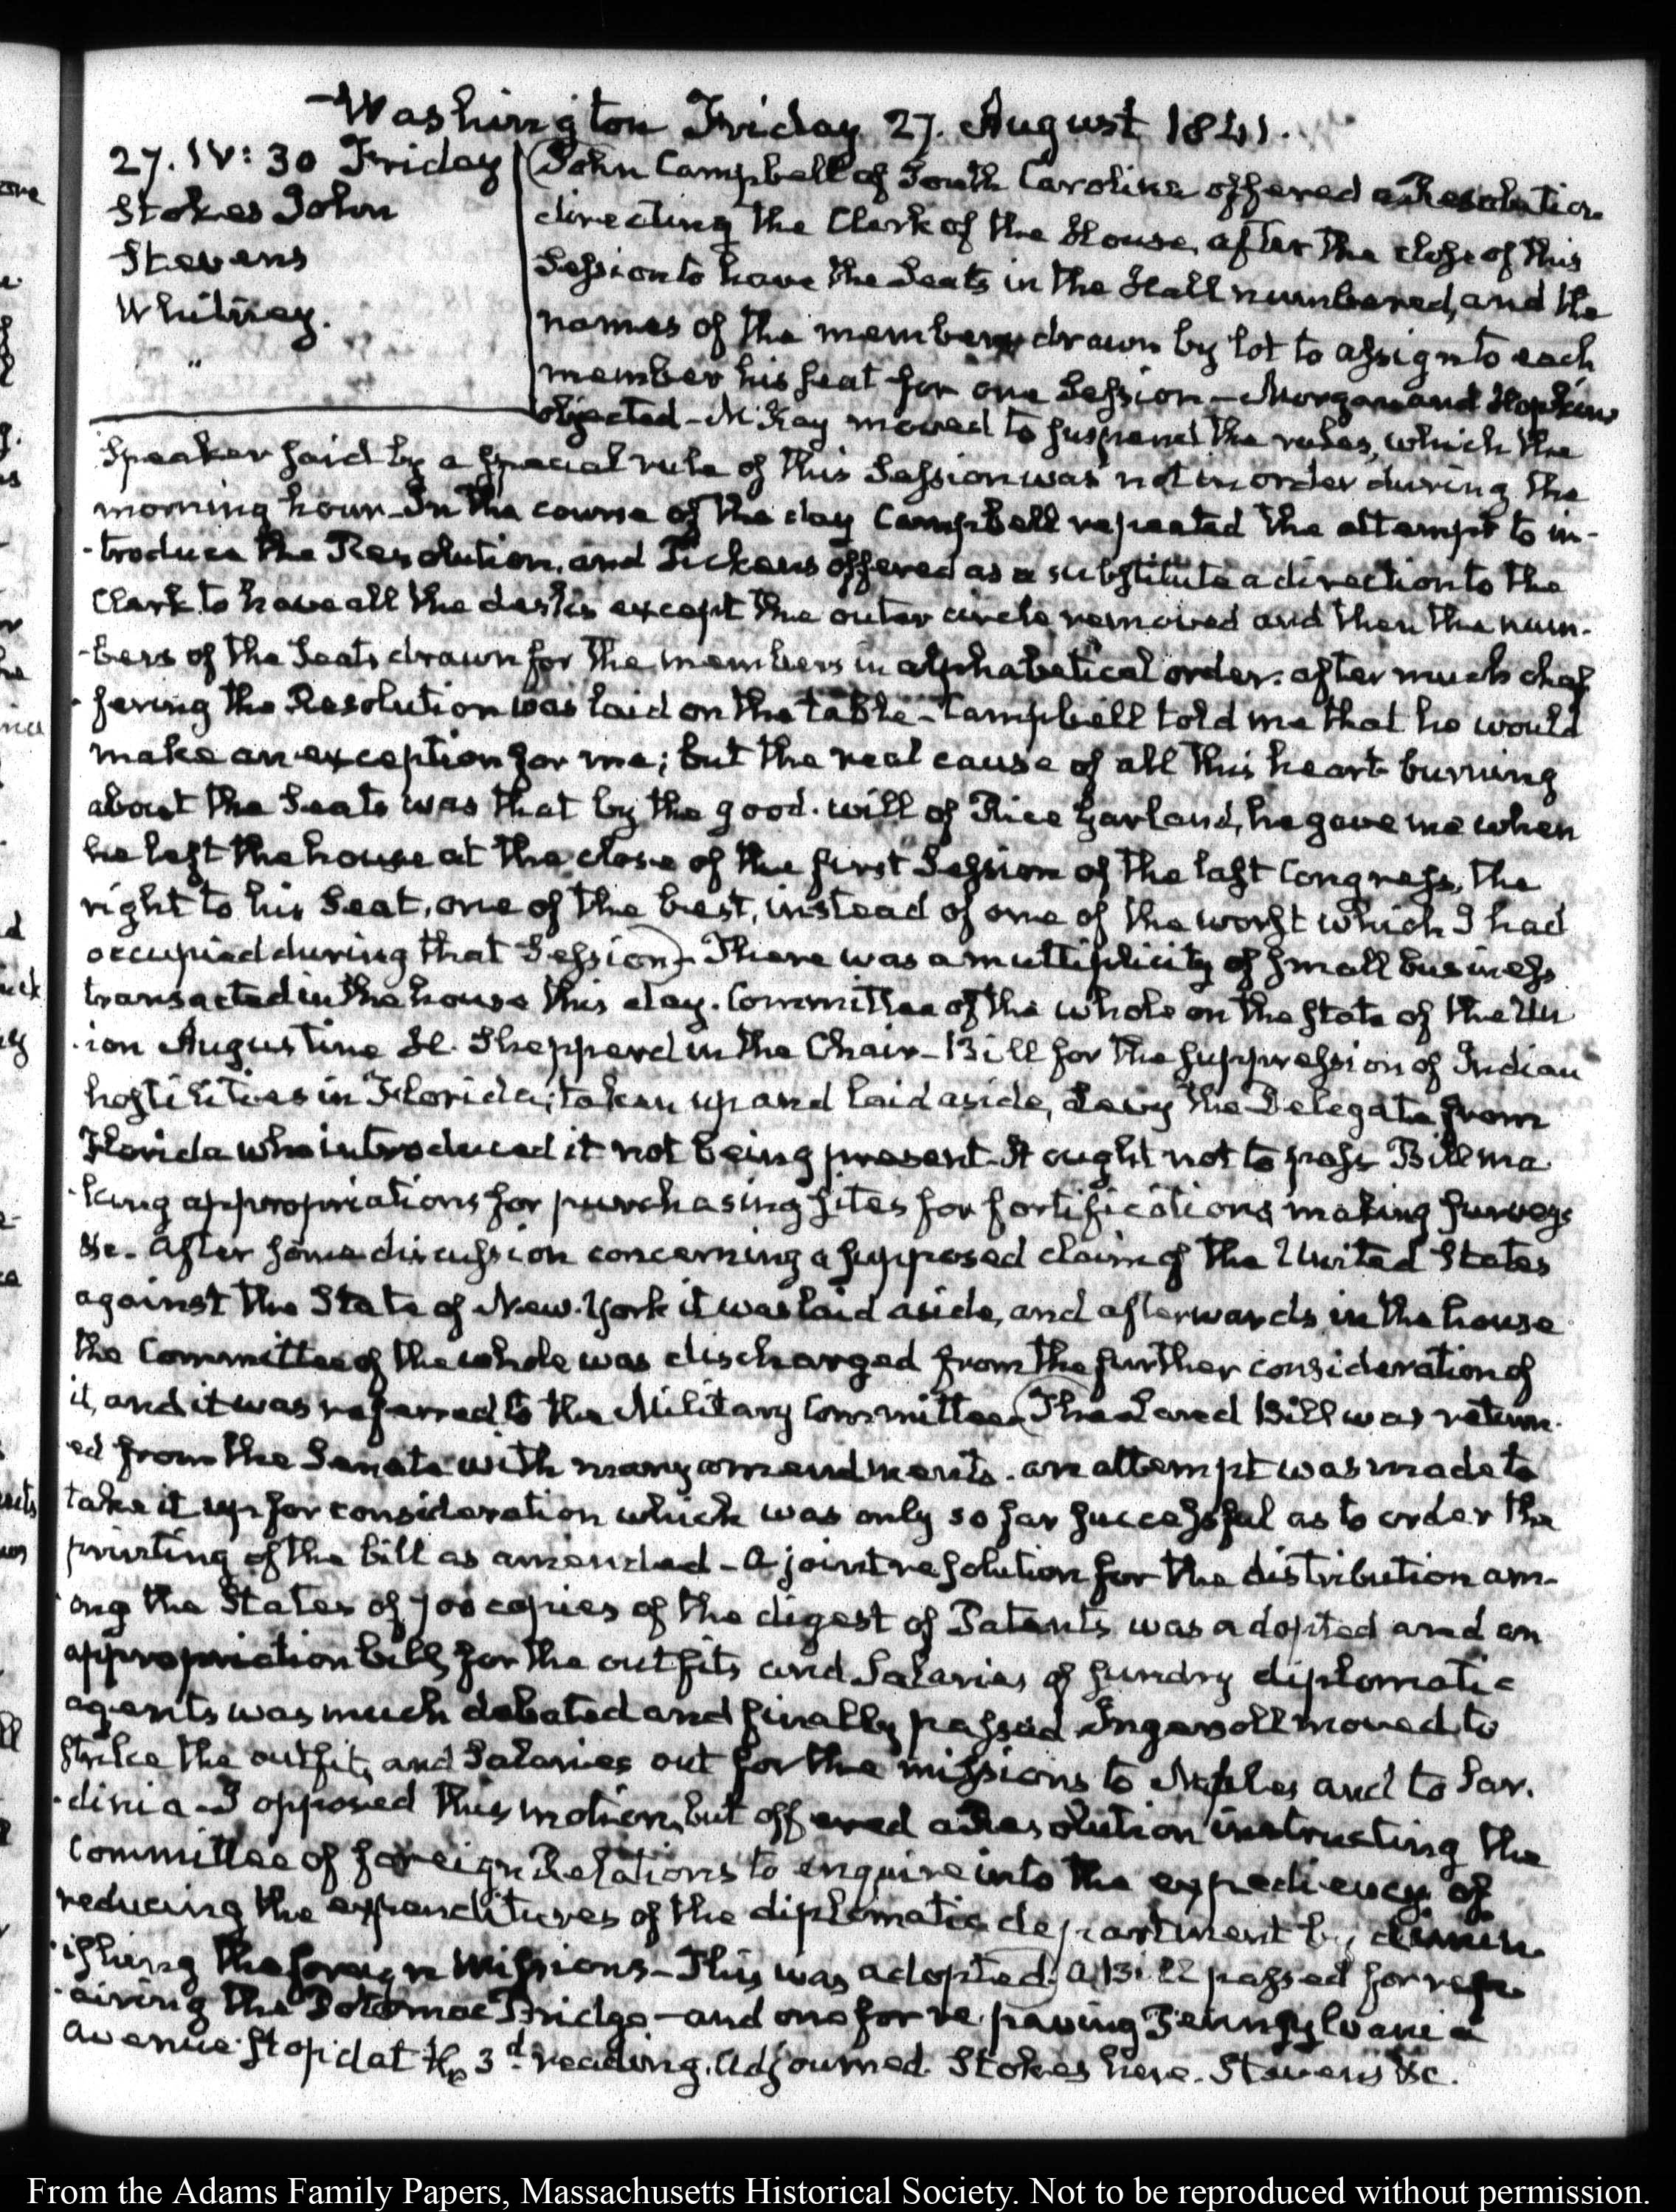 Washington Friday 27. August 1841.
27. IV: 30 Friday
Stokes John
Stevens
Whitney.
"
John Campbell of South Carolina offered a Resolution
directing the Clerk of the House, after the close of this
Session to have the Seats in the Hall numbered, and the
names of the members drawn by lot to assign to each
member his seat for one Session — Morgan and Hopkins
objected — McKay moved to suspend the rules, which the
Speaker said by a special rule of this Session was not in order during the
morning hour. In the course of the day Campbell repeated the attempt to in-
-troduce the Resolution, and Pickens offered as a substitute a direction to the
Clerk to have all the desks except the outer circle removed and then the num-
-bers of the Seats drawn for the members in alphabetical order. after much chaf
-fering the Resolution was laid on the table — Campbell told me that he would
make an exception for me; but the real cause of all this heart-burning
about the Seats was that by the good-will of Rice Garland, he gave me when
he left the house at the close of the first Session of the last Congress, the
right to his Seat, one of the best, instead of one of the worst which I had
occupied during that Session) — There was a multiplicity of small business
transacted in the house this day. Committee of the whole on the state of the Un
-ion Augustine H. Shepperd in the Chair — Bill for the suppression of Indian
hostilities in Florida; taken up and laid aside, Levy the Delegate from
Florida who introduced it not being present — It ought not to pass — Bill ma
-king appropriations for purchasing sites for fortifications making surveys
&c. After some discussion concerning a supposed claim of the United States
against the State of New-York it was laid aside, and afterwards in the house
the Committee of the whole was discharged from the further consideration of
it, and it was referred to the Military Committee (The Land Bill was return-
-ed from the Senate with many amendments. an attempt was made to
take it up for consideration which was only so far successful as to order the
printing of the bill as amended — A joint resolution for the distribution am-
-ong the States of 700 copies of the digest of Patents was adopted and an
appropriation bill, for the outfits and Salaries of sundry diplomatic
agents was much debated and finally passed Ingersoll moved to
strike the outfits and Salaries out for the missions to Naples and to Sar-
-dinia — I opposed this motion, but offered a Resolution instructing the
Committee of foreign Relations to enquire into the expediency of
reducing the expenditures of the diplomatic department by dimin-
-ishing the foreign missions — This was adopted) A Bill passed for repa-
-airing the Potomac Bridge — and one for re-paving Pennsylvania
avenue stop'd at the 3d reading. Adjourned. Stokes here. Stevens &c.
From the Adams Family Papers, Massachusetts Historical Society. Not to be reproduced without permission.